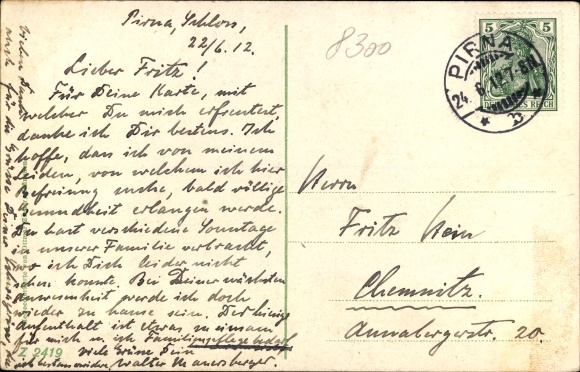 Pirna, Schloss,
22/6.12.
8300
Lieber Fritz!
Für Deine Karte, mit
welcher Du mich erfreutest,
danke ich Dir bestens. Ich
hoffe, dass ich von meinem
Leiden, von welchem ich hier
Befreiung suche, bald völlige
Gesundheit erlangen werde.
Du hast verschiedene Sonntage
in unserer Familie verbracht,
wo ich Dich leider nicht
sehen konnte. Bei Deiner nächsten
Anwesenheit werde ich doch
wieder zu hause sein. Der hiesige
Aufenthalt ist etwas zu einsam
für mich u. ich Familienpflege bedarf
viele Grüsse Dein
Walter
Vielen Dank
auch für die Grüsse Deiner
Z 2419
5 5
DEUTSCHES REICH
PIRNA
24.6.12.7-8N.
* b
Herrn
Fritz
Chemnitz.
Annabergerstr. 20.